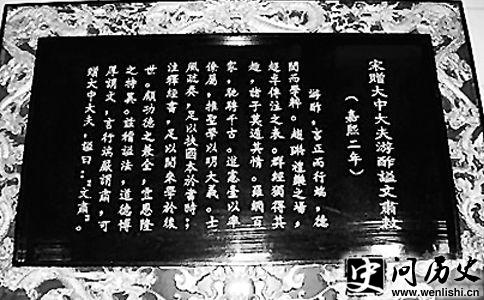 宋贈大中大夫游酢謚文肅敕
（嘉熙二年）
游酢，言正而行端，德
閎而學粹。趨琳澧雞之場，
超卓傳注之表。群經獨得其
趣，諸子莫遁其情。羅網百
家，馳騁千古。遊憲臺以率
僚屬，推聖學以明大義。士
風疏奏，足以扶國本於當時；
注釋經書，足以開來學於後
世。顧功德之兼全，宜恩隆
之特異。茲稽謚法，道德博
厚謂文，言行施嚴謂肅，可
贈大中大夫，謚曰："文肅"。
史问历史
www.wenlishi.cn